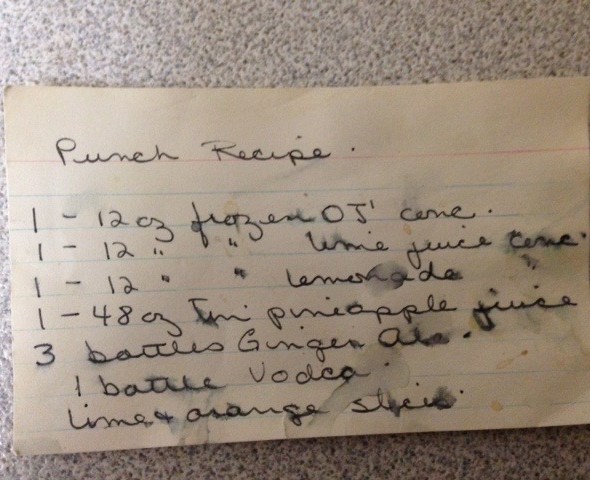 Punch Recipe.
1 - 12 oz frozen OJ conc.
1 - 12 " " lime juice conc.
1 - 12 " " lemonade "
1 - 48 oz Tin pineapple juice
3 bottles Ginger Ale.
1 bottle Vodca.
Lime + orange slices.